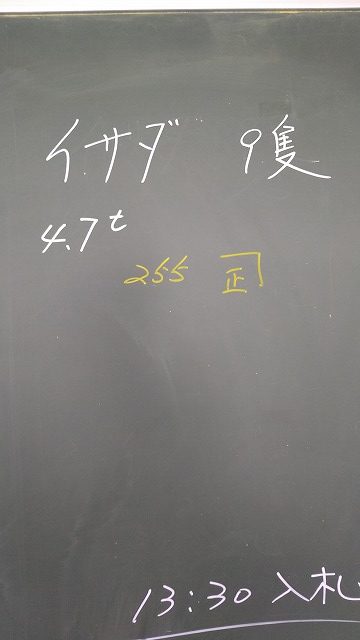 イサダ 9隻
4.7t
255 正
13:30 入札